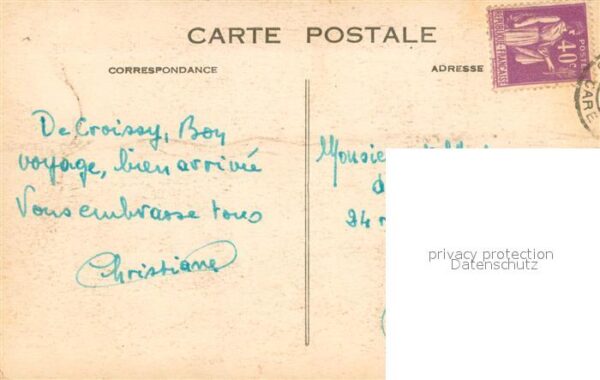 CARTE POSTALE
CORRESPONDANCE
ADRESSE
40c
POSTES
REPUBLIQUE FRANÇAISE
CARE
De Croissy, Bon
voyage, bien arrivée
Vous embrasse tous
Christiane
24
privacy protection
Datenschutz